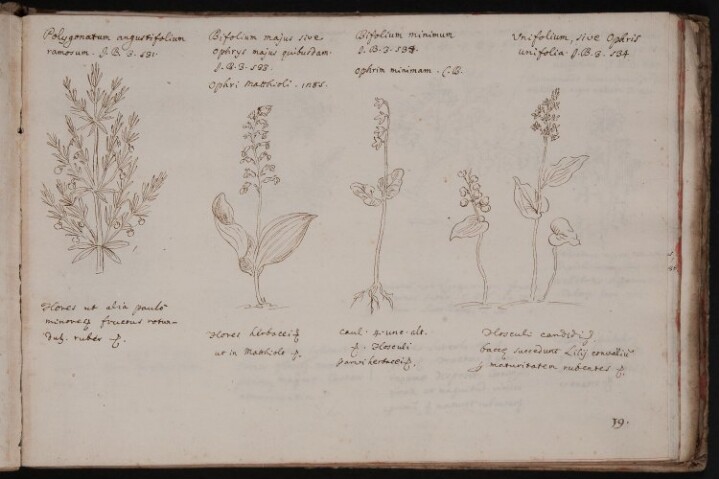 Polygonatum angustifolium
ramosum. J.B.3.531.
Bifolium majus sive
ophrys majus quibusdam.
J.B.3.533.
ophri Matthioli.
Bifolium minimum
J.B.3.533.
ophrin minimam. C.B.
Unifolium, sive Ophris
unifolia. J.B.3.534
Flores ut alia paulo
minores fructus rotun-
dus. ruber
Flores herbacei
ut in Matthiolo
caul. 4. unc. alt.
Flosculi
parvi herbacei
Flosculi candidi
succedunt Lilij convallium
maturitatem rubentes
19.